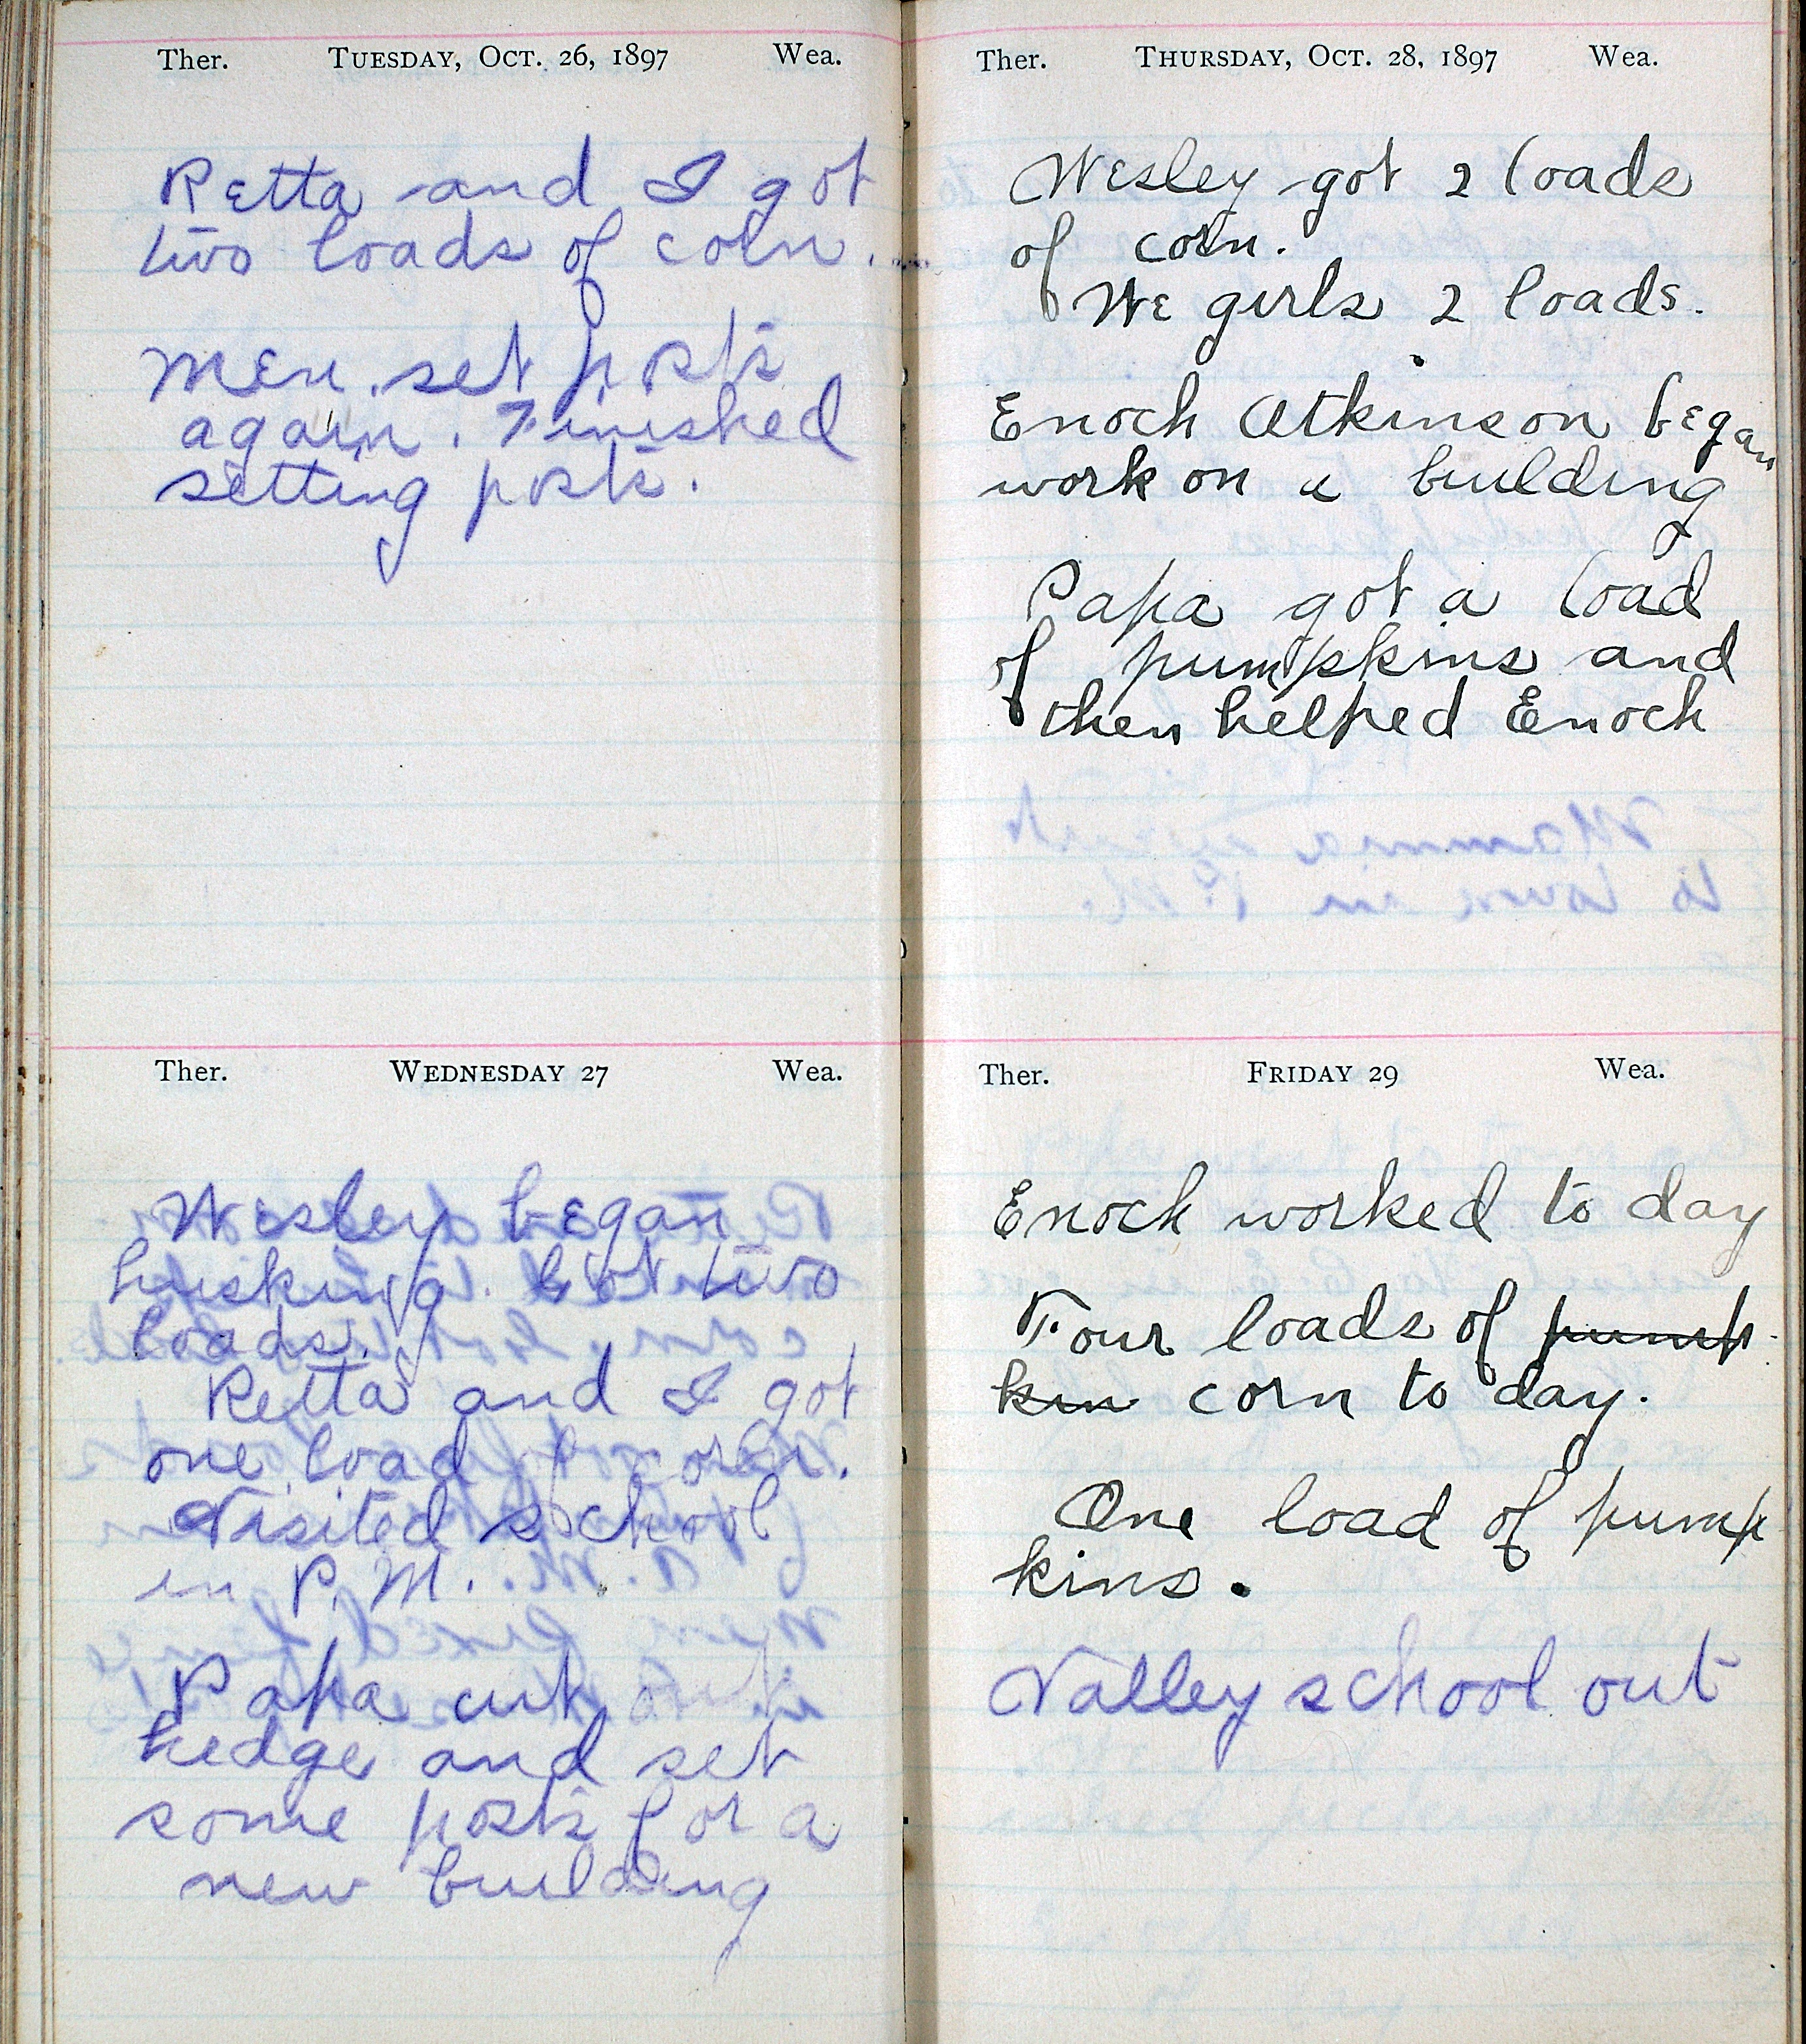 Ther. TUESDAY, OCT. 26, 1897 Wea.
Retta and I got
two loads of corn.
Men set posts
again. Finished
setting posts.
Ther. WEDNESDAY 27 Wea.
Wesley began
husking. Got two
loads.
Retta and I got
one load of corn.
Visited school
in P.M.
Papa cut out
hedge and set
some posts for a
new building
Ther. THURSDAY, OCT. 28, 1897 Wea.
Wesley got 2 loads
of corn.
We girls 2 loads.
Enoch Atkinson began
work on a building
Papa got a load
of pumpskins and
then helped Enoch
Ther. FRIDAY 29 Wea.
Enoch worked to day
Four loads of pump
kin corn to day.
One load of pump
kins.
Valley school out